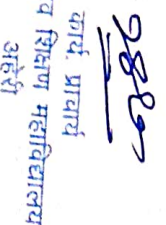 कार्य. प्राचार्य
व शिक्षण महाविद्यालय
अहेरी